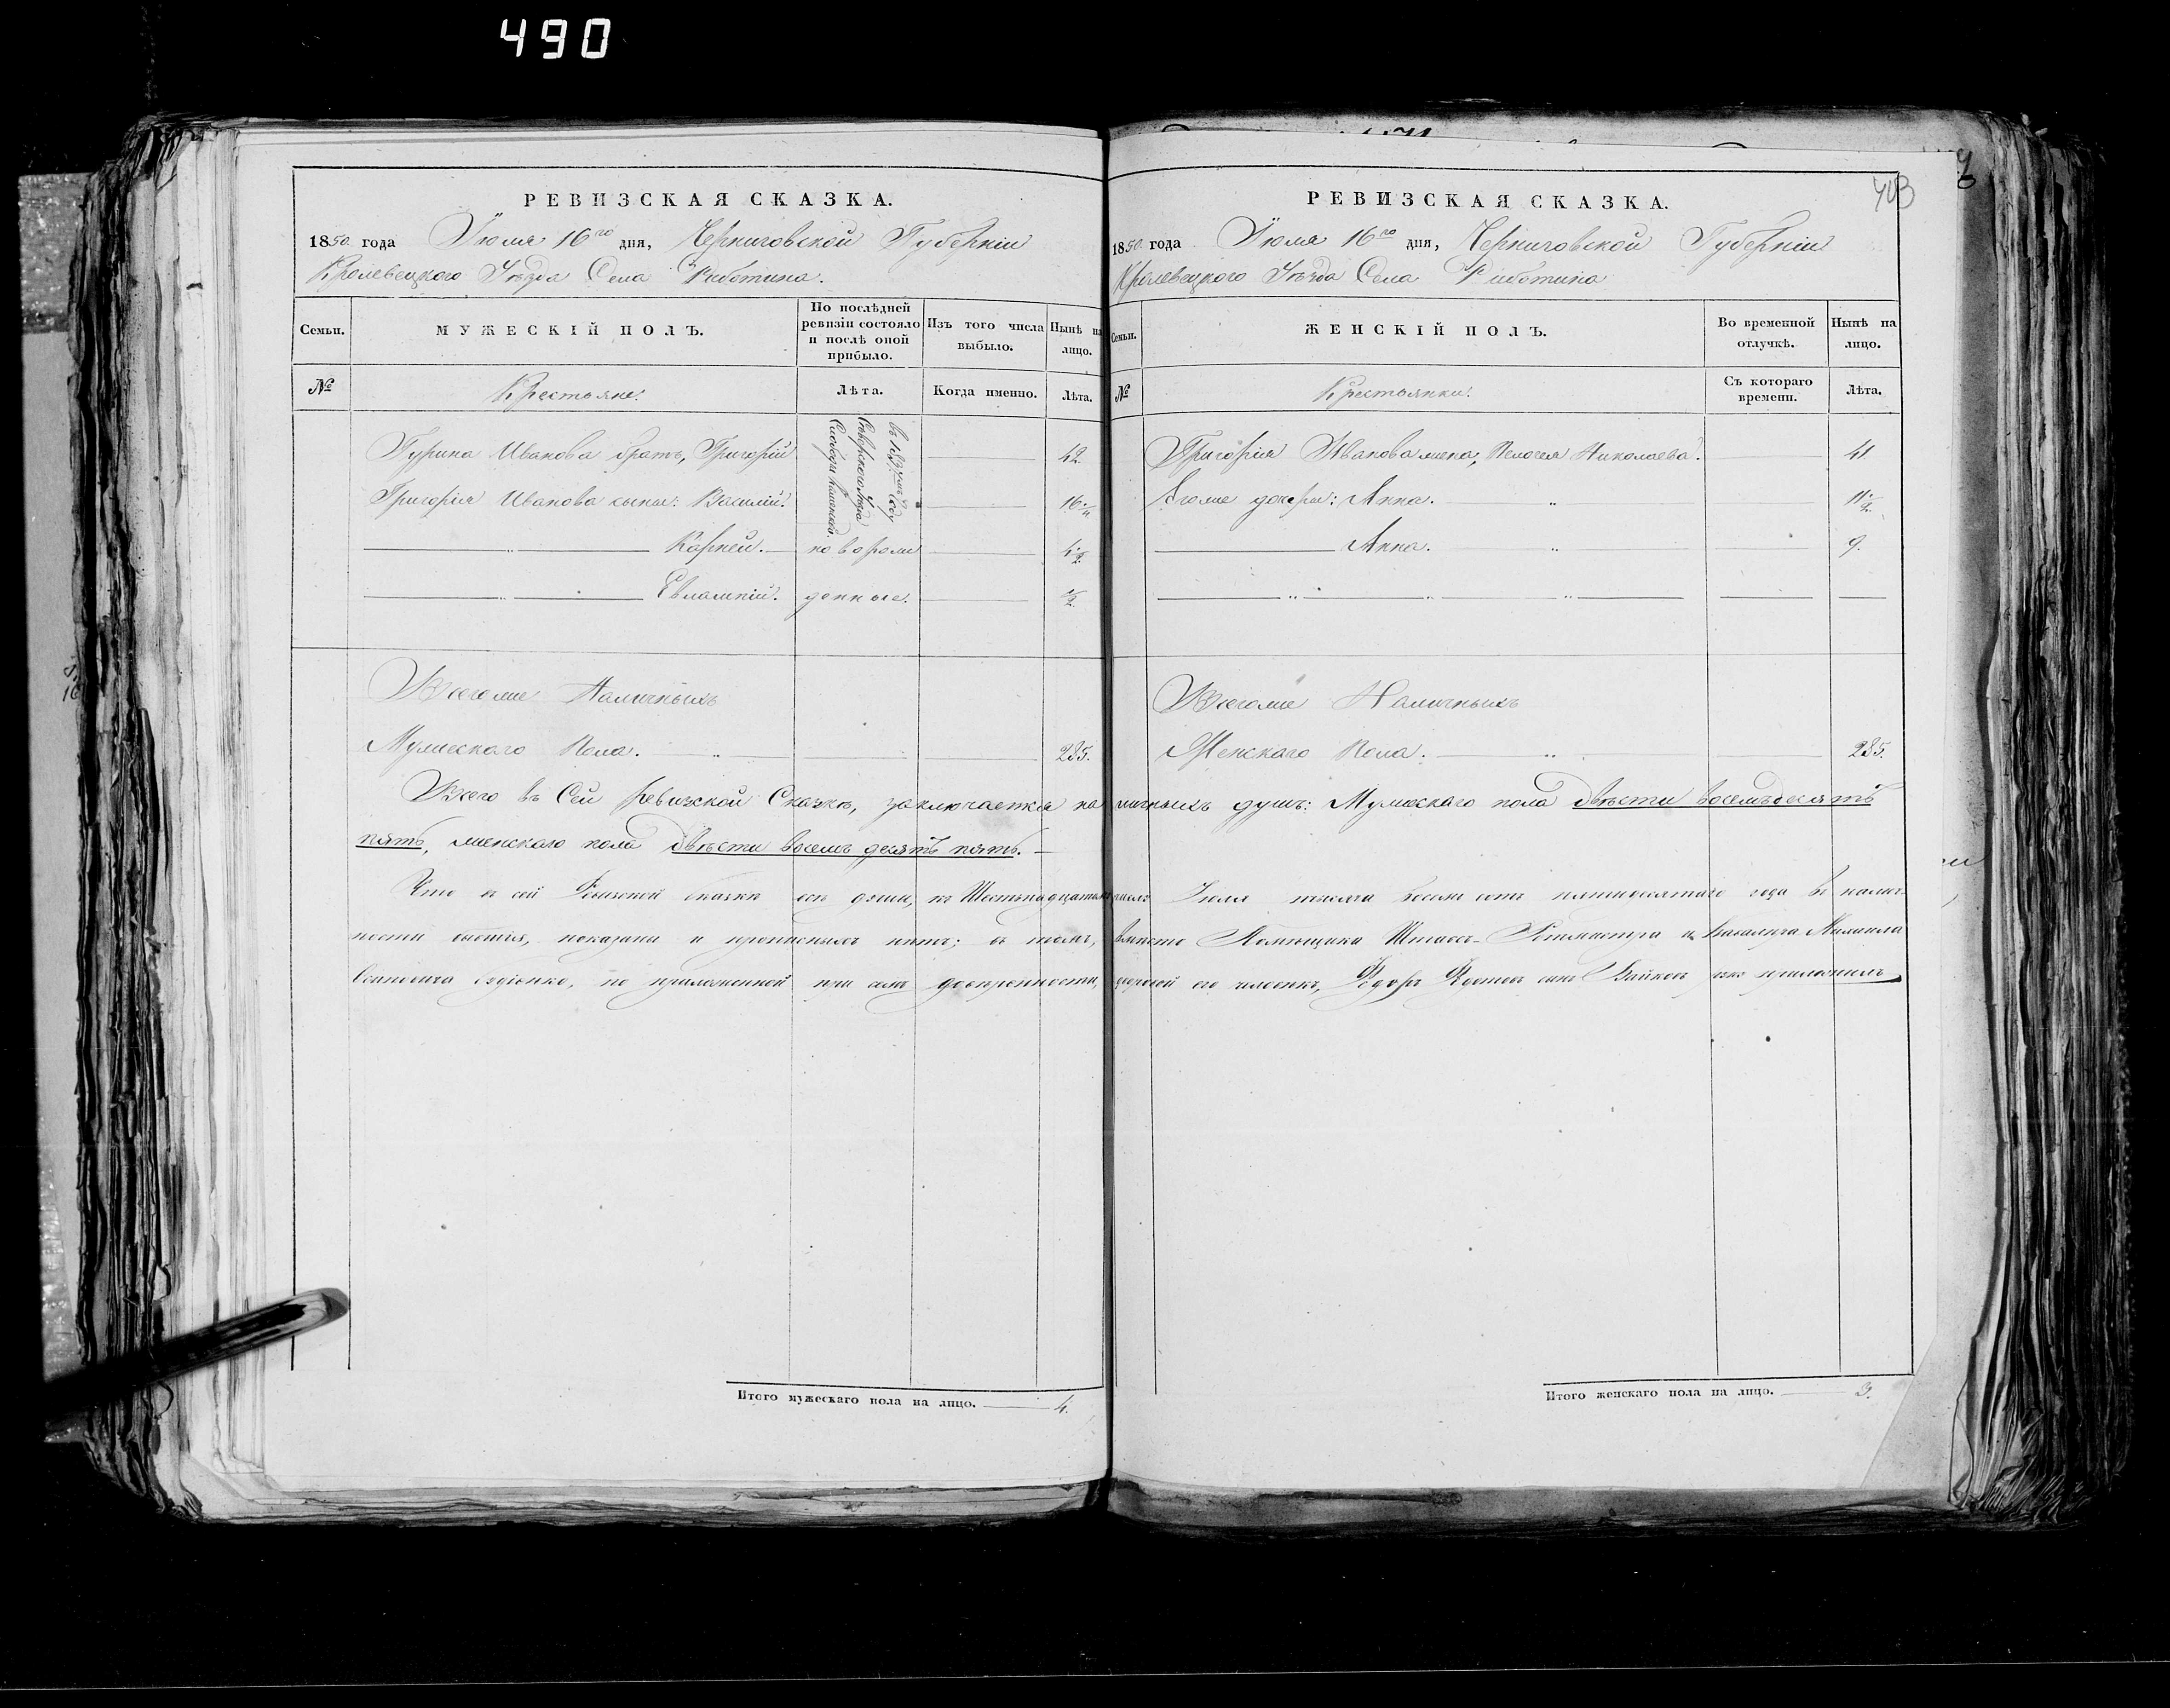 490
РЕВИЗСКАЯ СКАЗКА.
1850. года Іюля 16го дня, Черниговской Губерніи
Кролевецкого Уѣзда Села Работина.
Семьи.
МУЖЕСКІЙ ПОЛЪ.
По послѣдней ревизіи состояло и послѣ оной прибыло.
Изъ того числа выбыло.
Нынѣ на лицо.
№
Крестьяне.
Лѣта.
Когда именно.
Лѣта.
Гурина Иванова братъ, Григорій 42.
Григорія Иванова сынъ: Василій. 16
въ 18
Корней. новорож 4 1/2.
Евлампій. денные. 1/2
Всего же Наличныхъ
Мужескаго Пола. 285.
Итого мужескаго пола на лицо. 4.
403
РЕВИЗСКАЯ СКАЗКА.
1850. года Іюля 16го дня, Черниговской Губерніи
Кролевецкого Уѣзда Села Работина
Семьи.
ЖЕНСКІЙ ПОЛЪ.
Во временной отлучкѣ.
Нынѣ на лицо.
№
Крестьянки.
Съ котораго времени.
Лѣта.
Григорія Иванова жена, Пелагея Николаева. 41
Его же дочери: Анна. 11 1/2.
Анна. 9.
Всего же Наличныхъ
Женскаго Пола. 285.
Всего въ Сей ревизской Сказкѣ, заключается наличныхъ душъ: Мужескаго пола двѣсти восемьдесятъ
пять, женскаго пола двѣсти восемь десятъ пять.
Что в сей Ревизской сказки всѣ души, къ Шестьнадцатому число Іюля тысяча восемь сотъ пятидесятаго года в налич-
ности бытія, показаны и прописныхъ нѣтъ; въ томъ, вмѣсто Помещика Штабсъ-Ротмистра и Кавалера Михаила
по приложенной при семъ довѣренности, дворовой его человекъ, Федоръ сынъ Зайковъ приложилъ
Итого женскаго пола на лицо. 3.